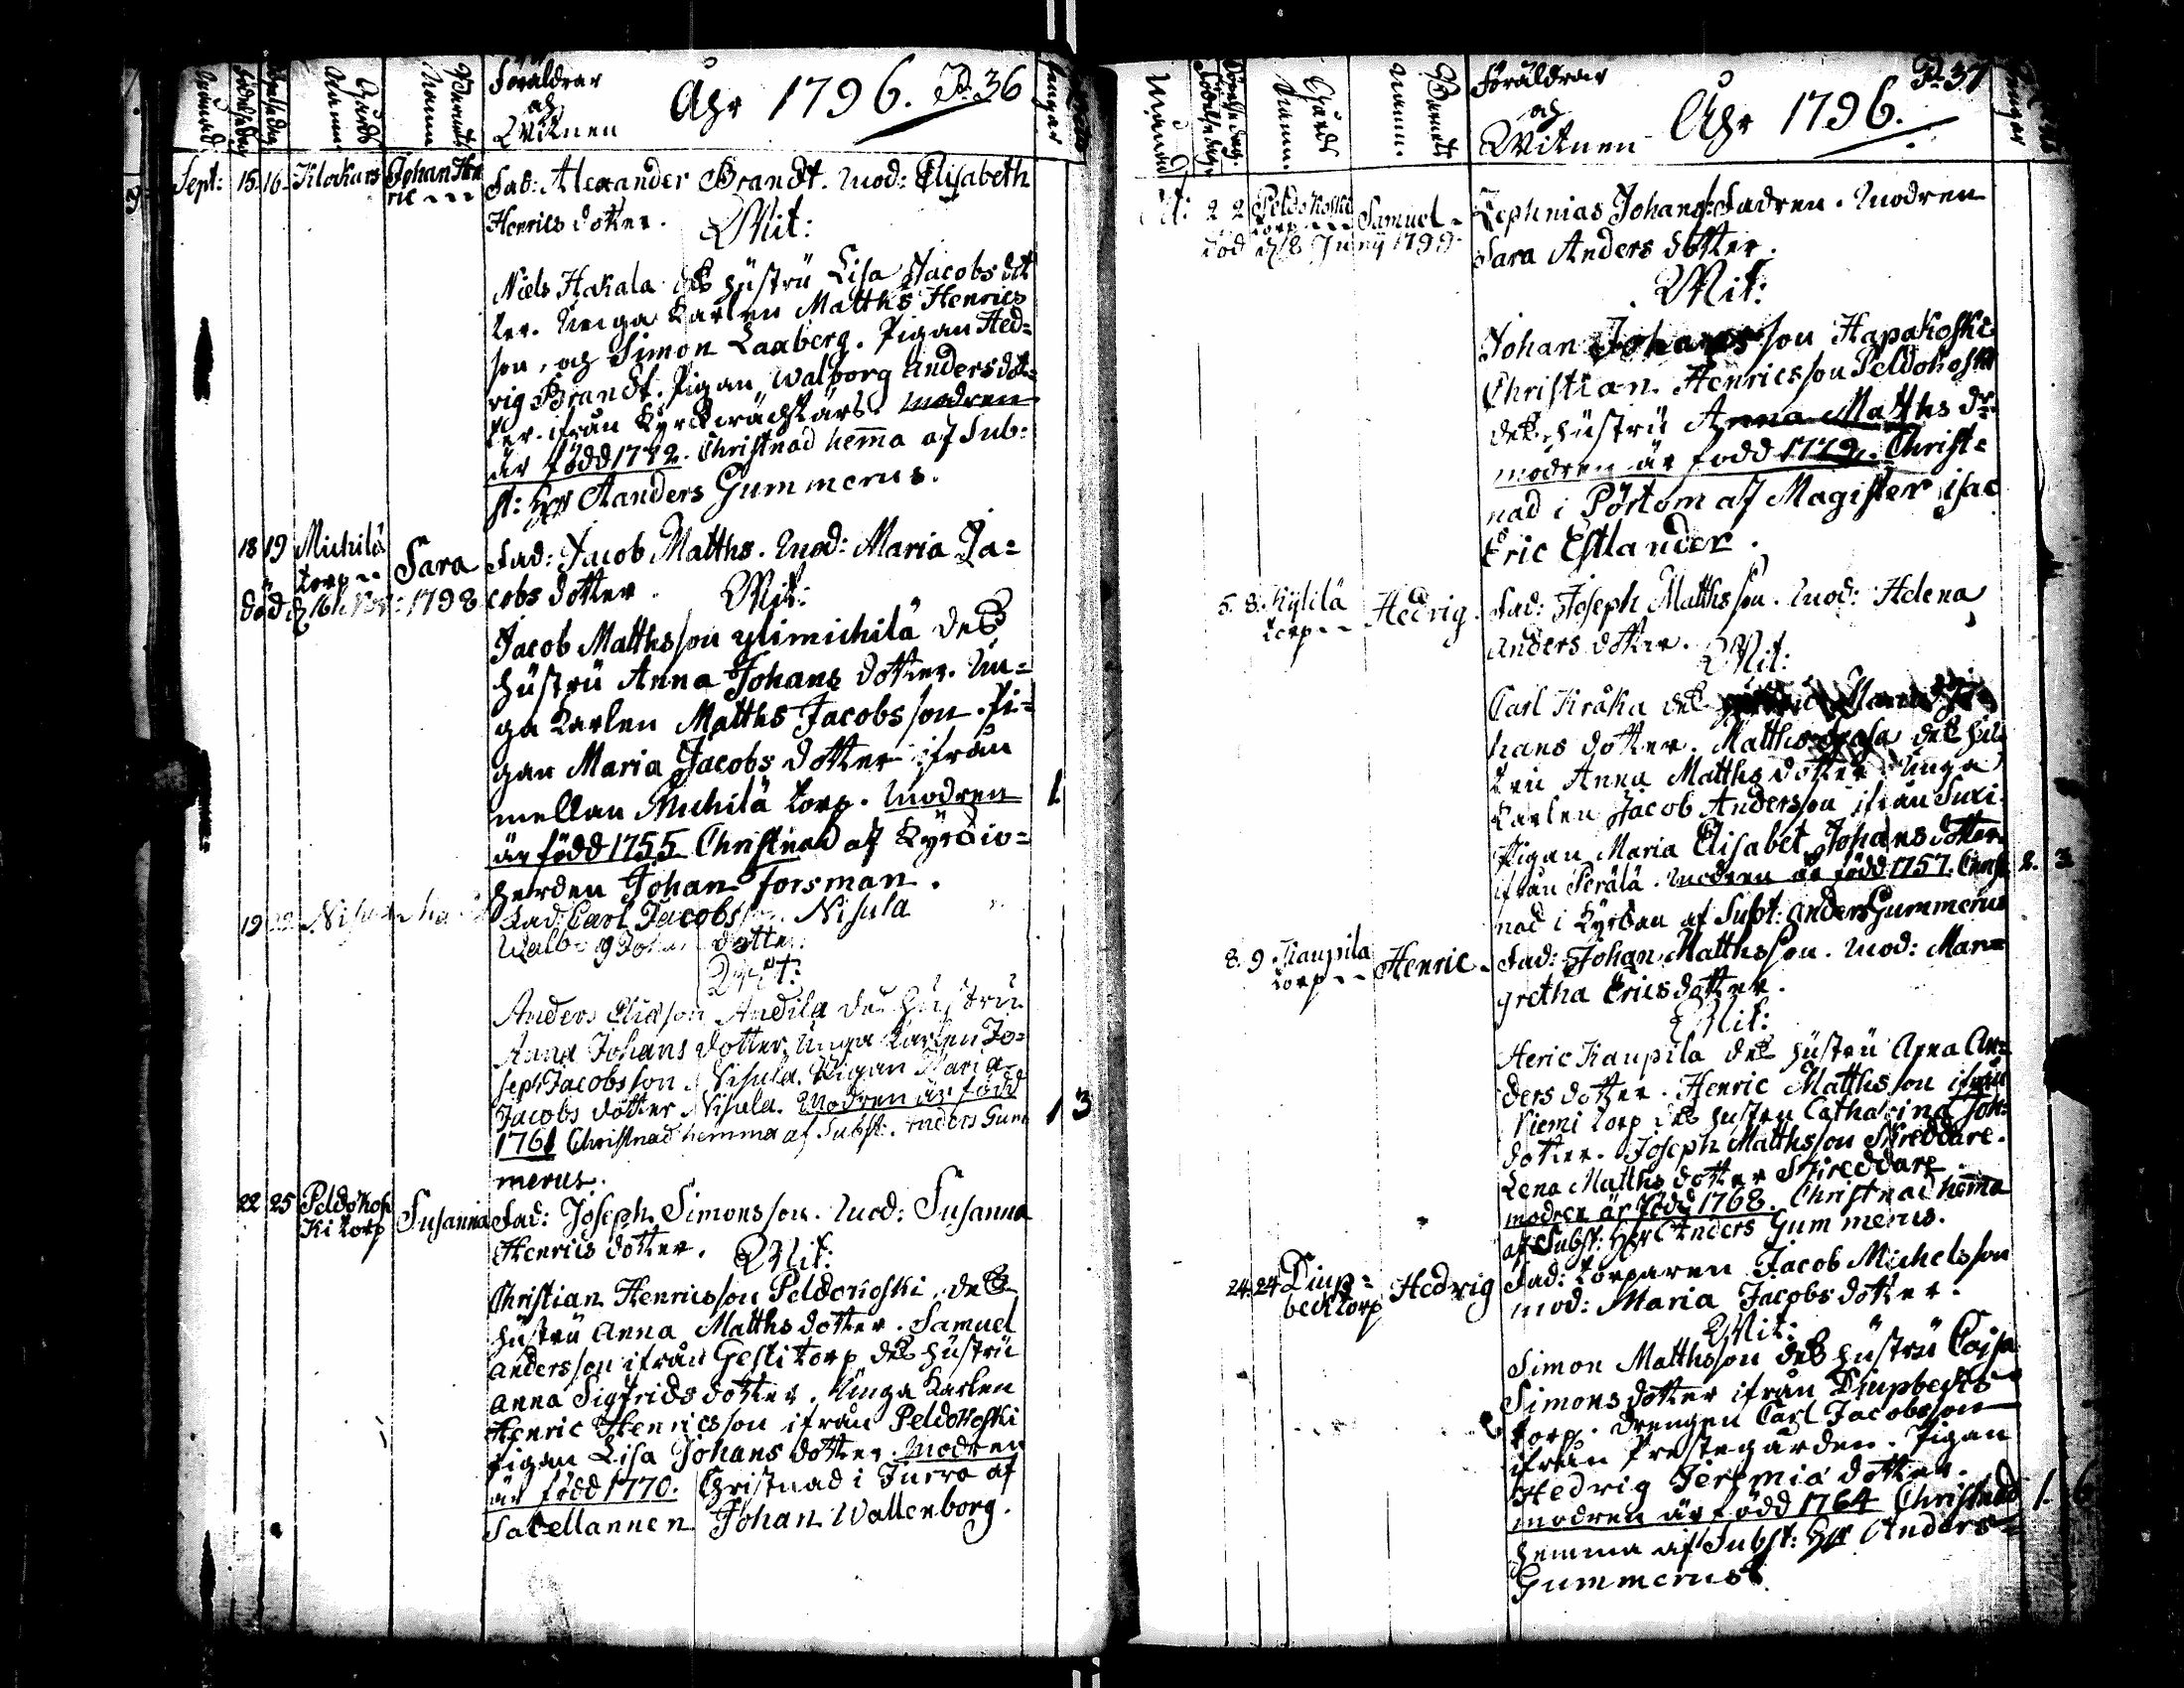 Månad
Födelsedag
Döpelsedag
Gårds Namn
Barnets Namn
Föräldrar
och
Witnen
Åhr 1796. Pa: 36
Sept: 15. 16. Klockars Johan Hen
ric
Fad: Alexander Brandt. Mod: Elisabeth
Henrics dotter.
Wit:
Niels Hakala des hustru Lisa Jacobs dot
ter. Unga Karlen Matths Henrics
son, och Simon Laxberg. Pigan Hed=
vig Brandt. Pigan Walborg Anders dot=
ter ifrån Modren
är född 1772. Christnad hemma af Sub=
st: Her Aanders Gummerus.
18 19 Michilä
torp -- Sara
död d 16 : 1798
Fad: Jacob Matths. Mod: Maria Ja=
cobs dotter.
Wit:
Jacob Matthsson ylimichilä des
hustru Anna Johans dotter. Un=
ga Karlen Matths Jacobsson. Pi=
gan Maria Jacobs dotter ifrån
mellan Michilä torp. Modren
är född 1755 Christnad af Kyrkio=
herden Johan Forsman.
1
19 Nisula
Fad: Carl Jacobsson Nisula
Walborg Johans dotter.
Wit:
Anders Andila des hustru
Anna Johans dotter. Unga Karlen Jo=
seph Jacobsson Nisula. Pigan Maria
Jacobs dotter Nisula. Modren är född
1761 Christnad hemma af Subst: Anders Gum
merus.
1 3
22 25 Peldokos
ki torp Susanna
Fad: Joseph Simonsson. Mod: Susanna
Henrics dotter.
Wit:
Christian Henricsson Peldokoski, des
hustru Anna Matths dotter. Samuel
Andersson ifrån Gesti torp des hustru
Anna Sigfrids dotter. Unga Karlen
Henric Henricsson ifrån Peldokoski
Pigan Lisa Johans dotter. Modren
är född 1770. Christnad i Jurva af
Sacellannen Johan Wallenborg.
Månad
Födelsedag
Döpelsedag
Gårds Namn
Barnets Namn
Föräldrar
och
Witnen
Åhr 1796. Pa: 37
2 2 Peldokoski
torp -- Samuel
död d 8 Juny 1799
Zephnias Johans: Fadren. Modren
Sara Anders dotter.
Wit:
Johan Johansson Hapakoski
Christian Henricsson Peldokoski
des hustru Anna Matths dr.
modren är född 1772. Christ=
nad i Pörtom af Magister Isac
Eric Estlander.
5. 8. Kylilä
torp -- Hedvig.
Fad: Joseph Matthsson. Mod: Helena
Anders dotter.
Wit:
Carl Kråka des
hans dotter. Matths des hus
tru Anna Matths dotter. Unga
Karlen Jacob Andersson ifrån Suxi.
Pigan Maria Elisabet Johans dotter
ifrån Perälä. Modren är född 1757. Christ
nad i Kyrkan af Subst: Anders Gummerus
2. 3
8. 9 Kaupila
torp -- Henric.
Fad: Johan Matthsson. Mod: Mar=
gretha Erics dotter.
Wit:
Heric Kaupila des hustru Anna An=
ders dotter. Henric Matthsson ifrån
Niemi torp des hustru Catharina Joh:
dotter. Joseph Matthsson Skreddare.
Lena Matths dotter Skreddare
modren är född 1768. Christnad hemma
af Subst: Her Anders Gummerus.
24. 24 Diup=
beck torp Hedvig
Fad: torparen Jacob Michelsson
mod: Maria Jacobs dotter.
Wit:
Simon Matthsson des hustru Cajsa
Simons dotter ifrån Djupbecks
torp. Drengen Carl Jacobsson
ifrån Prestegården. Pigan
Hedvig Jeremia dotter.
modren är född 1764 Christnad
hemma af Subst: Her Anders
Gummerus.
1. 6